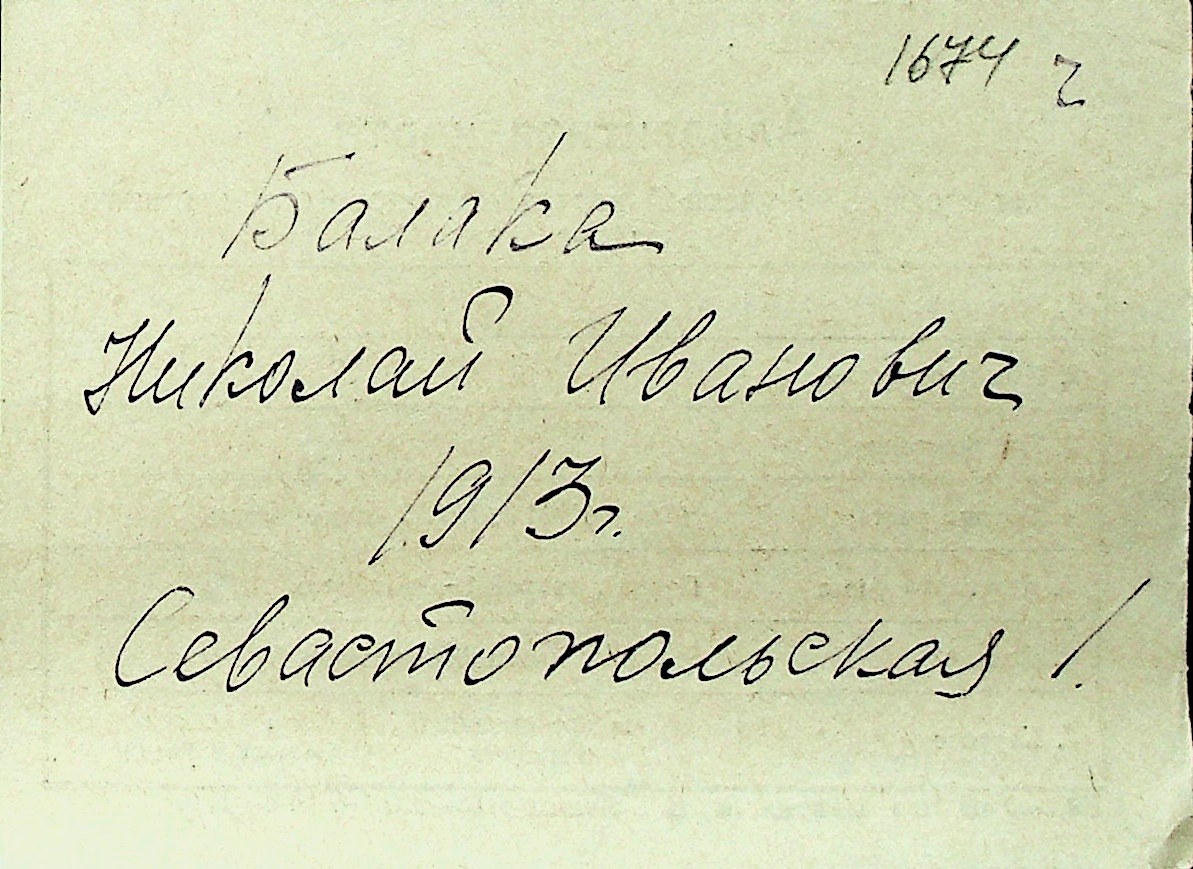 1674 ч
Балака
Николай Иванович
1913г.
Севастопольская 1.